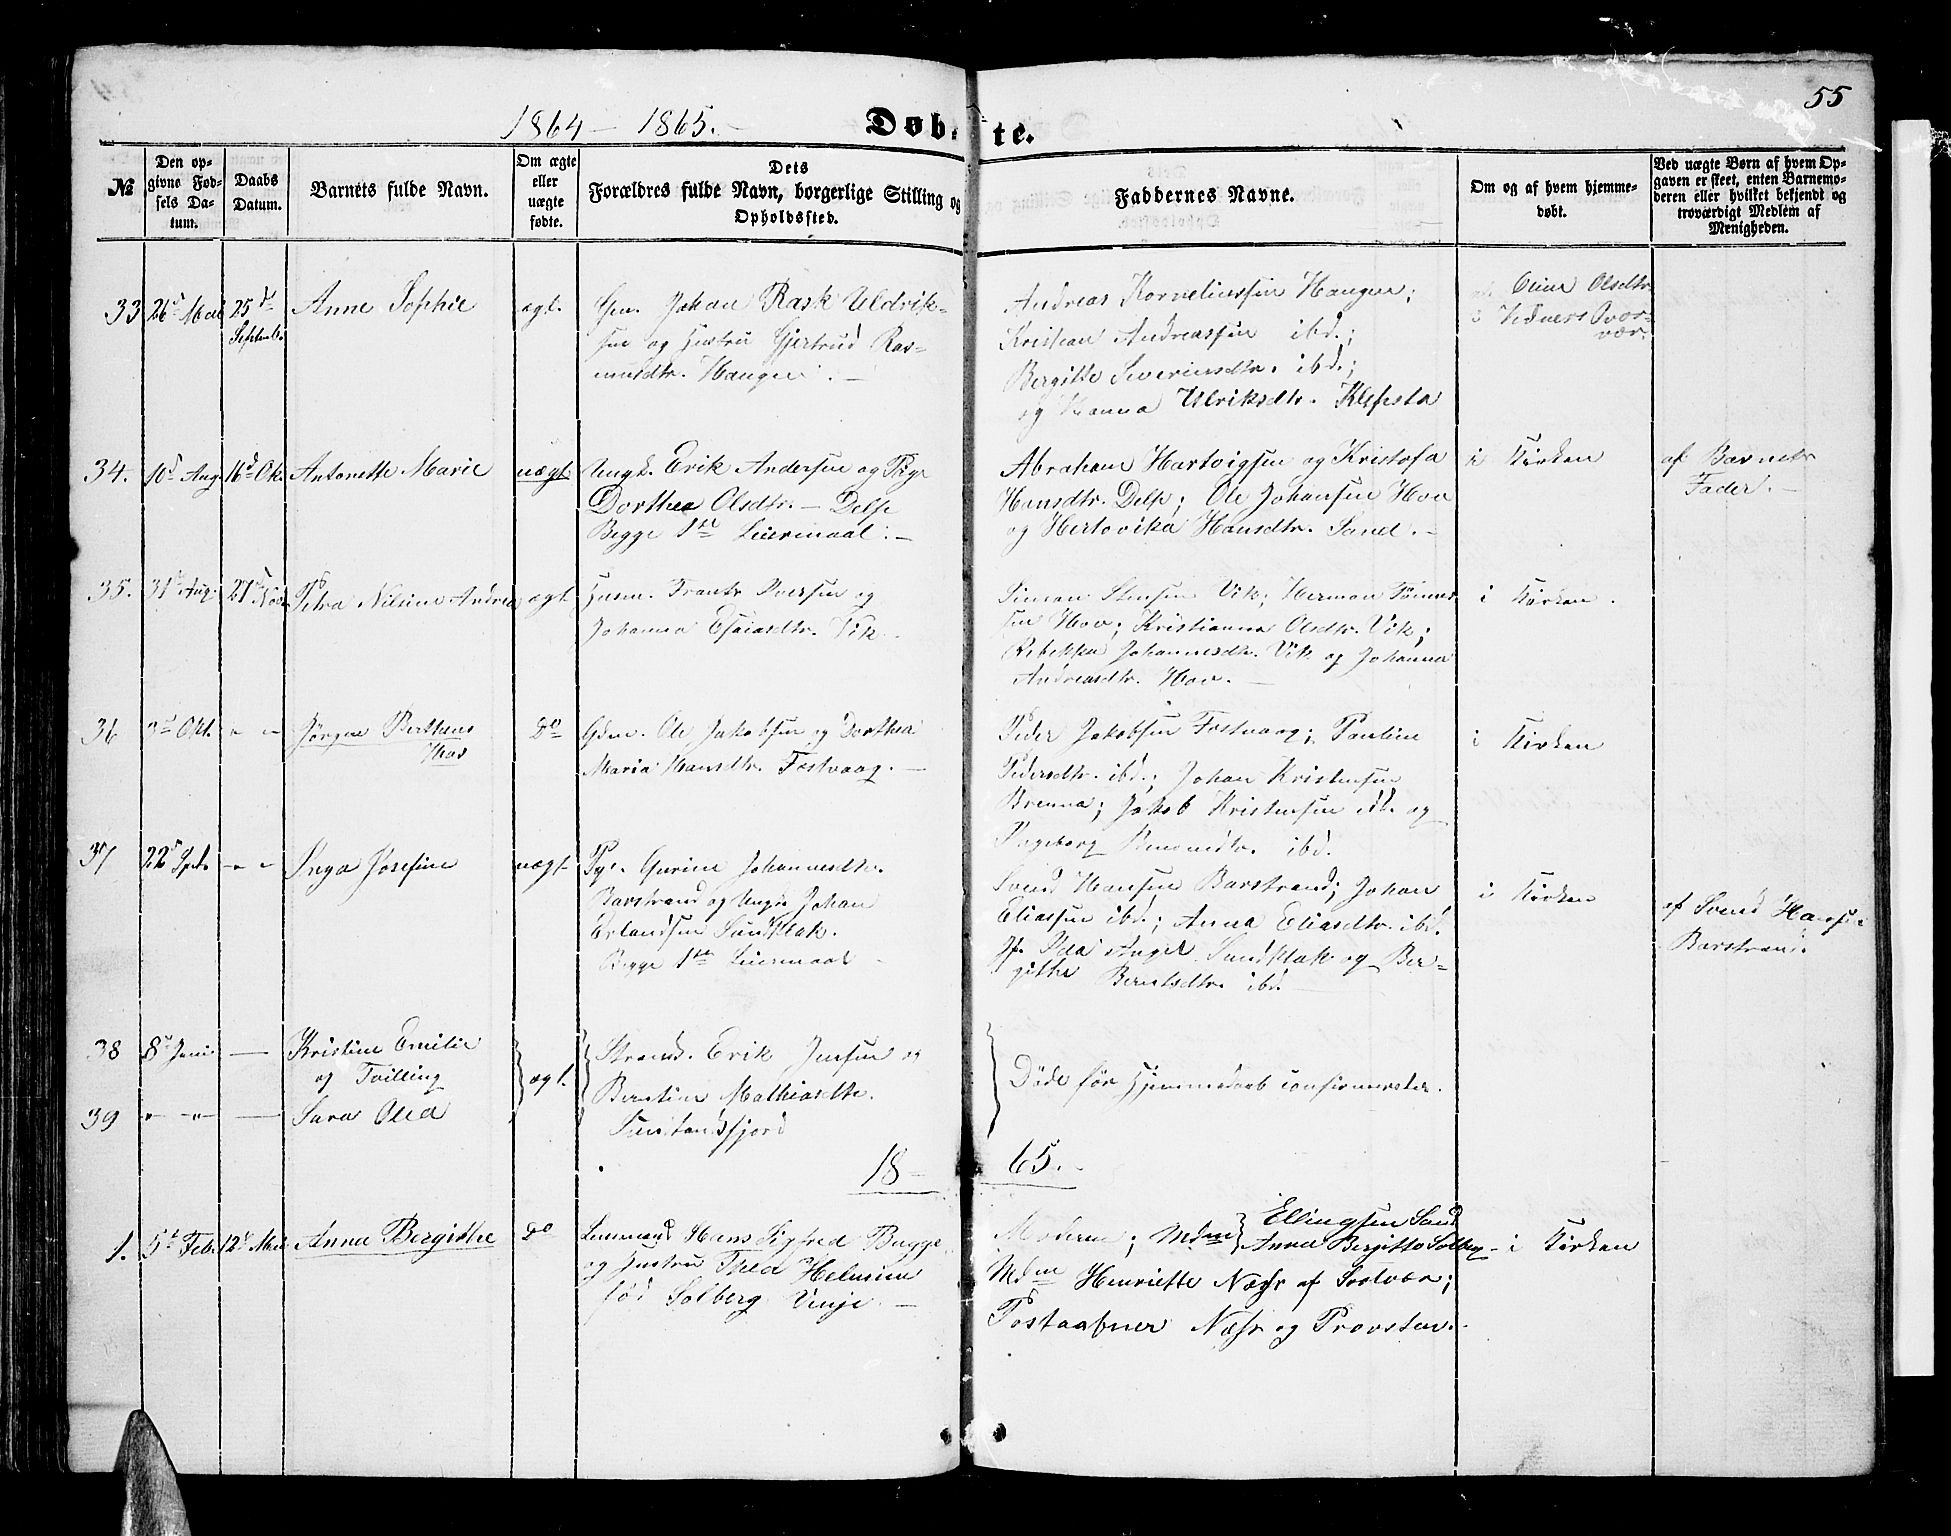 55
1864 – 1865. –
Døbte.
№
Den op-
givne Fød-
sels Da-
tum.
Daabs
Datum.
Barnets fulde Navn.
Om ægte
eller
uægte
fødte.
Dets
Forældres fulde Navn, borgerlige Stilling og
Opholdssted.
Faddernes Navne.
Om og af hvem hjemme-
døbt.
Ved uægte Børn af hvem Op-
gaven er skeet, enten Barnemo-
deren eller hvilket bekjendt og
troværdigt Medlem af
Menigheden.
33 26d Mai 25d
Septemb.
Anne Sophie
ægt.
Johan Rask Uldrik-
sen og Hustru Gjertrud Ras-
musdtr. Haugen. –
Andreas Korneliussen Haugen;
Kristian Andreassen ibd.;
Bergitte Severinsdtr. ibd.;
og Hanna Ulriksdtr. Klefesta
Olsdtr.
34. 10d Aug 16d Ok.
Antonette Marie
uægt.
Ungk. Erik Andersen og Pige
Dorthea Olsdtr. – Delp
Begge 1ste Leiermaal. –
Abraham Hartvigsen og Kristofa
Hansdtr. Delp; Ole Johansen Hov
og Hertovika Hansdtr. Sand. –
i Kirken
af Barnets
Fader. –
35. 31d Aug. 27d Nov
Petra Nilsine Andrea
ægt.
Husm. Frants Iversen og
Johanna Esaiasdtr. Vik
Simon Stensen Vik; Herman Tønnes-
sen Hov; Kristianna Olsdtr. Vik;
Rebekka Johannesdtr. Vik og Johanna
Andreasdtr. Hov. –
i Kirken.
36 3d Okt. " "
Jørgen Berthens
Hov
do
Gdm. Ole Jakobsen og Dorthea
Maria Hansdtr. Føstvaag. –
Peder Jakobsen Fostvaag; Pauline
Pedersdtr. ibd.; Johan Kristensen
Brenna; Jakob Kristensen ibd. og
Ingeborg ibd.
i Kirken
37 22d Spt. " "
Inga Josefine
uægt.
Pge. Gurine Johannesdtr.
Barstrand og Ungk. Johan
Erlandsen Sandklak.
Begge 1ste Leiermaal –
Svend Hansen Barstrand; Johan
Eliassen ibd.; Anna Eliasdtr. ibd.
P. Ida Sandklak og Ber-
githe Berntsdtr. ibd.
i Kirken
af Svend Hansen
Barstrand.
38 8d Juni –
Kristine Emilie
og Tvilling
ægt.
Strands. Erik Jensen og
Berntine Mathiasdtr.
39 " " –
Sara Olea
Døde før Hjemmedaab confirmeredes.
18– 65. –
1. 5d Feb. 12d Mai
Anna Bergitthe
do
Lensmand Hans Sigfred Bugge
og Hustru Thea Helmine
fød Solberg Vinje. –
Moderen; Mdm Ellingsen Sand
Anna Bergitte Solberg –
Mdm Henriette Næss af Sostvær;
Postaabner Næss og Provsten. –
i Kirken